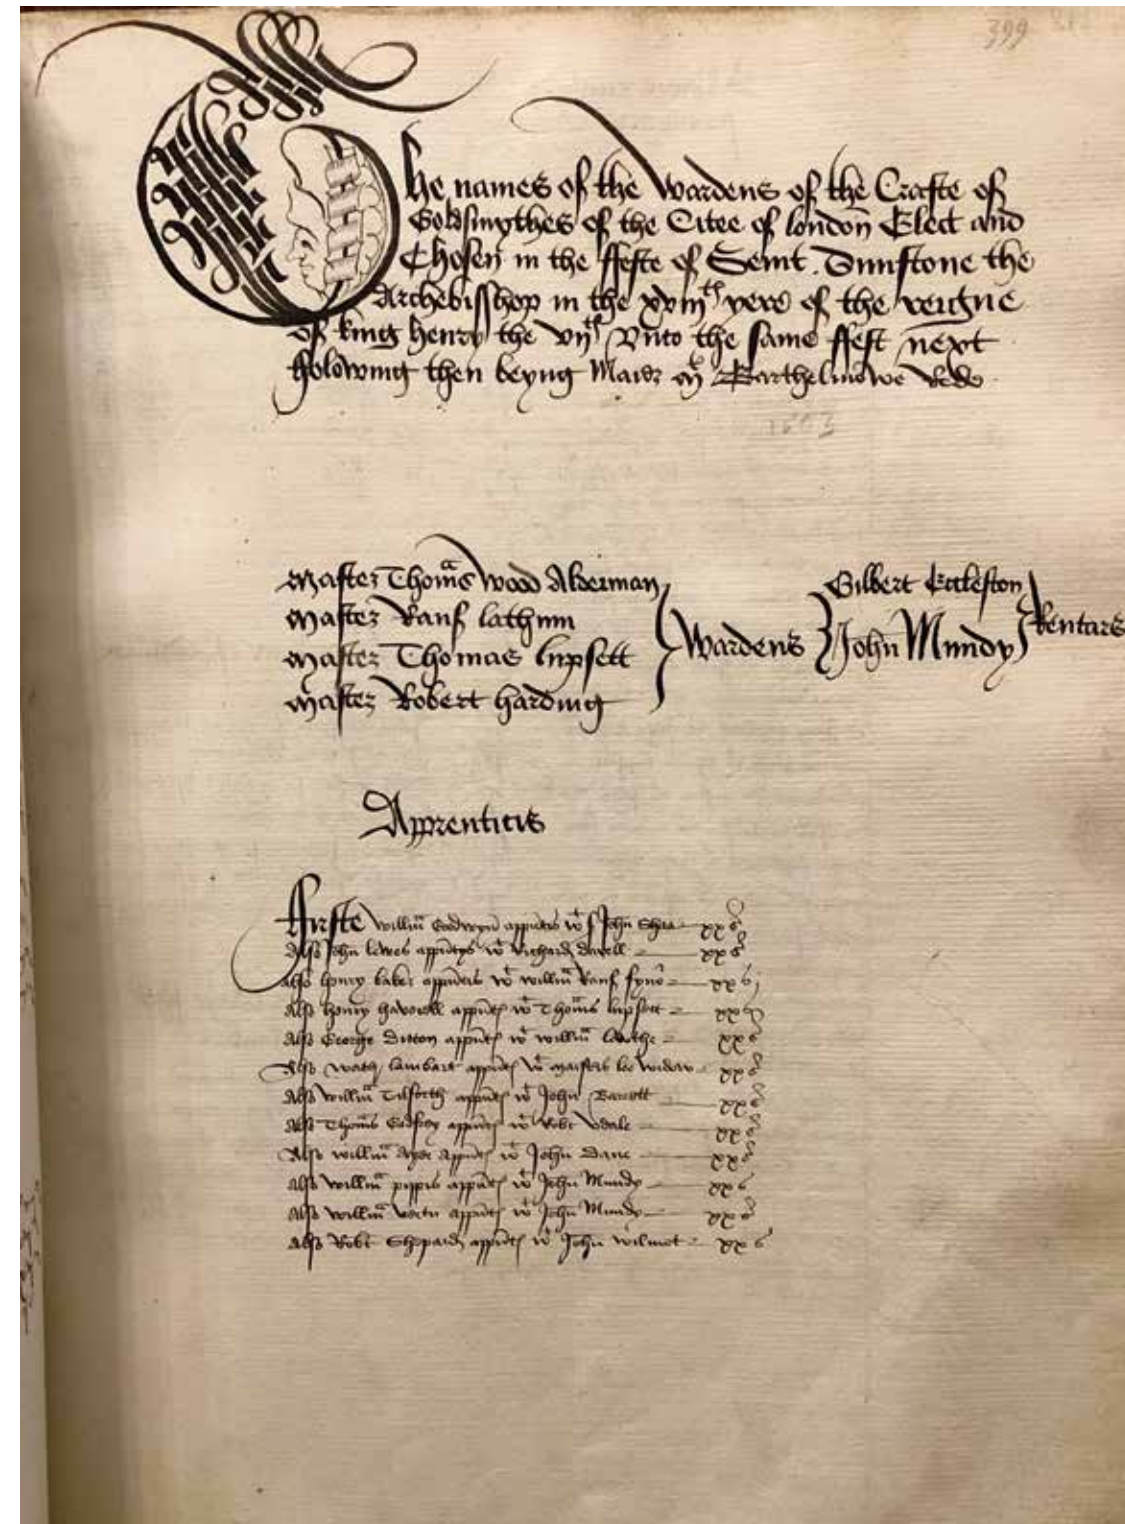 399
The names of the Wardens of the Crafte of
Goldsmythes of the Citee of london Elect and
Chosen in the ffeste of Seint Dunstone the
Archebisshop in the xviijth yere of the reigne
of king henry the vijth Vnto the same ffest next
folowing then beyng Maier Mr Barthelmewe Rede
1503
Master Thomas Wood Alderman
Master Rauf lathum
Master Thomas lupsett
Master Robert harding
Wardens
Gilbert Eccleston
John Mundy
Rentars
Apprenticis
Firste willm Goodwyn apprntis wt John Shaa xx s
Also John lewes apprntys wt Richard xx s
Also henry baker apprntis wt willm Rauf xx s
Also henry apprntes wt Thoms lupsett xx s
Also George Ditton apprntes wt willm xx s
Also lambart apprntes wt maistres lee widow xx s
Also willm Tilforth apprntes wt John Barrett xx s
Also Thoms Godfrey apprntes wt Robt Vdale xx s
Also willm apprntes wt John Dane xx s
Also willm pyppis apprntes wt John Mundy xx s
Also willm apprntes wt John Mundy xx s
Also Robt Shepard apprntes wt John wilmot xx s